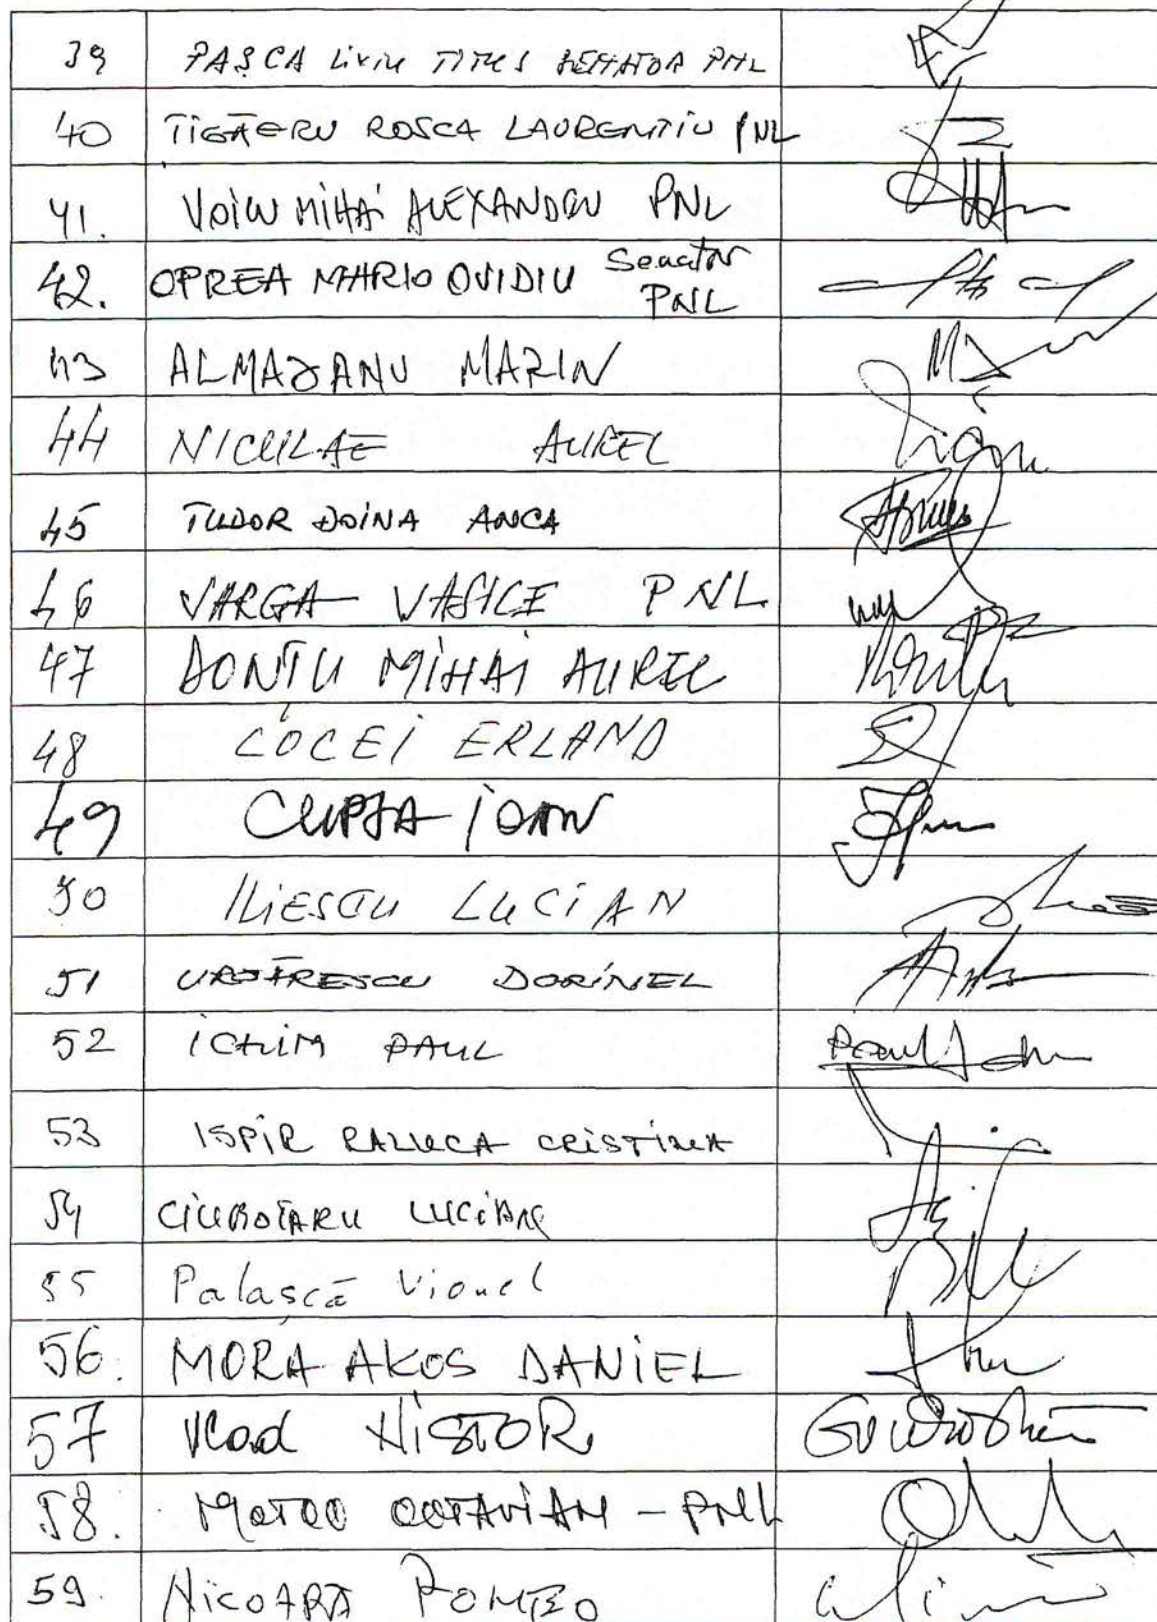 39 PAȘCA Liviu TITUS SENATOR PNL
40 TIGĂERU ROSCA LAURENTIU PNL
41. VOICU MIHAI ALEXANDRU PNL
42. OPREA MARIO OVIDIU Senator PNL
43 ALMAJANU MARIN
44 NICULAE AUREL
45 TUDOR DOINA ANCA
46 VARGA VASILE PNL
47 DONȚU MIHAI AUREL
48 COCEI ERLAND
49 CUPȘA IOAN
50 ILIESCU LUCIAN
51 DORINEL
52 ICHIM PAUL
53 ISPIR RALUCA CRISTINA
54 CIUBOTARU LUCIAN
55 Palașcă Viorel
56. MORA AKOS DANIEL
57 Vlad NISTOR
58. OCTAVIAN - PNL
59. NICOARĂ ROMEO